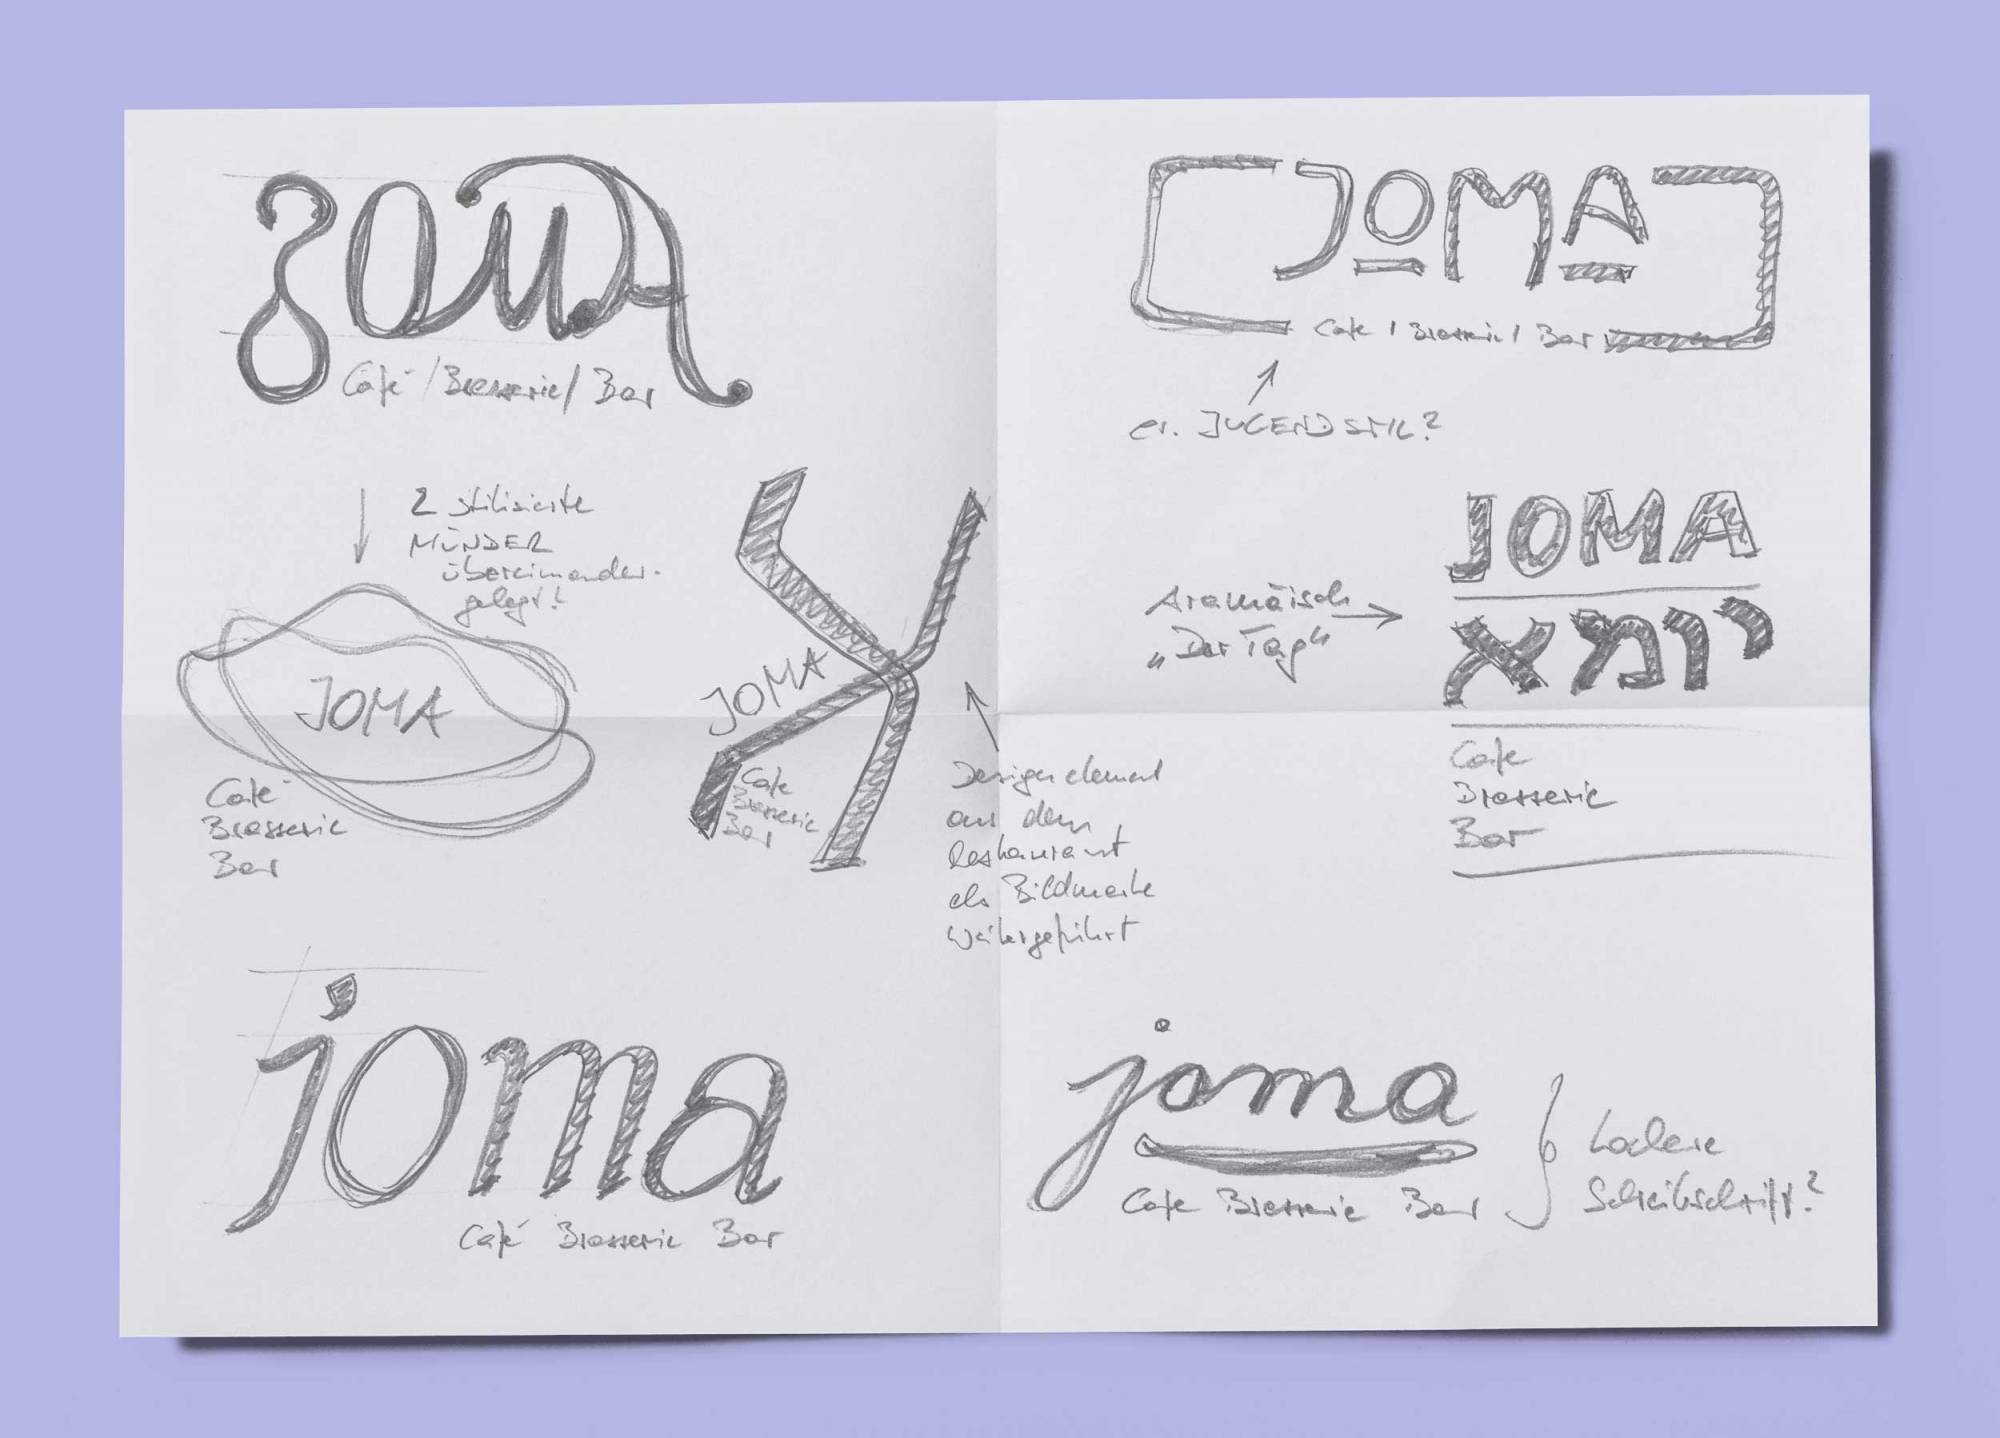 JOMA
Café / Brasserie / Bar
JOMA
Cafe / Brasserie / Bar
ev. JUGENDSTIL?
2 stilisierte
MÜNDER
übereinander-
gelegt?
JOMA
Café
Brasserie
Bar
JOMA
Cafe
Brasserie
Bar
Designelement
aus dem
Restaurant
als Bildmarke
weitergeführt
Aramäisch
„Der Tag“
JOMA
יומא
Cafe
Brasserie
Bar
joma
Café Brasserie Bar
joma
Cafe Brasserie Bar
Lockere
Schreibschrift?